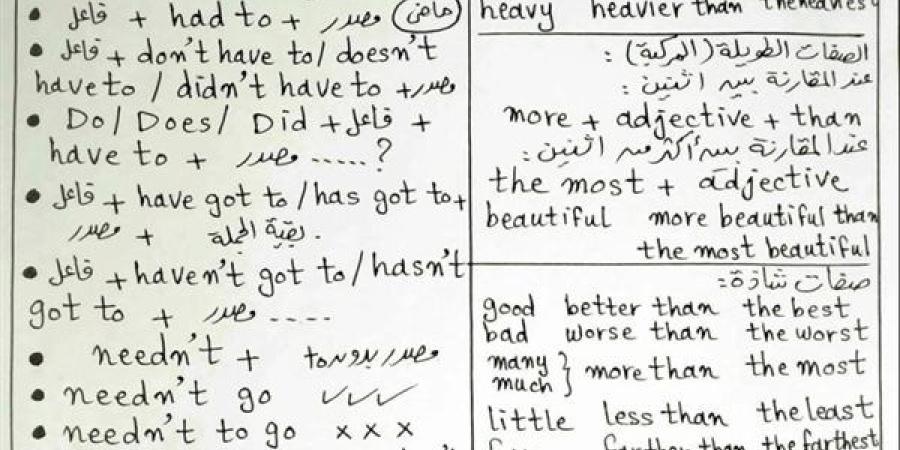 • فاعل + had to + مصدر (ماضى)
• فاعل + don't have to/ doesn't
have to / didn't have to + مصدر
• Do/ Does/ Did + فاعل +
have to + مصدر .....?
• فاعل + have got to /has got to+
مصدر + بقية الجملة .
• فاعل + haven't got to/hasn't
got to + مصدر .....
• needn't + مصدر بدون to
• needn't go ✓✓✓
• needn't to go x x x
heavy heavier than the heaviest
الصفات الطويلة (المركبة) :
عند المقارنة بين اثنين :
more + adjective + than
عند المقارنة بين أكثر من اثنين :
the most + adjective
beautiful more beautiful than
the most beautiful
صفات شاذة :
good better than the best
bad worse than the worst
many
much } more than the most
little less than the least
farther than the farthest